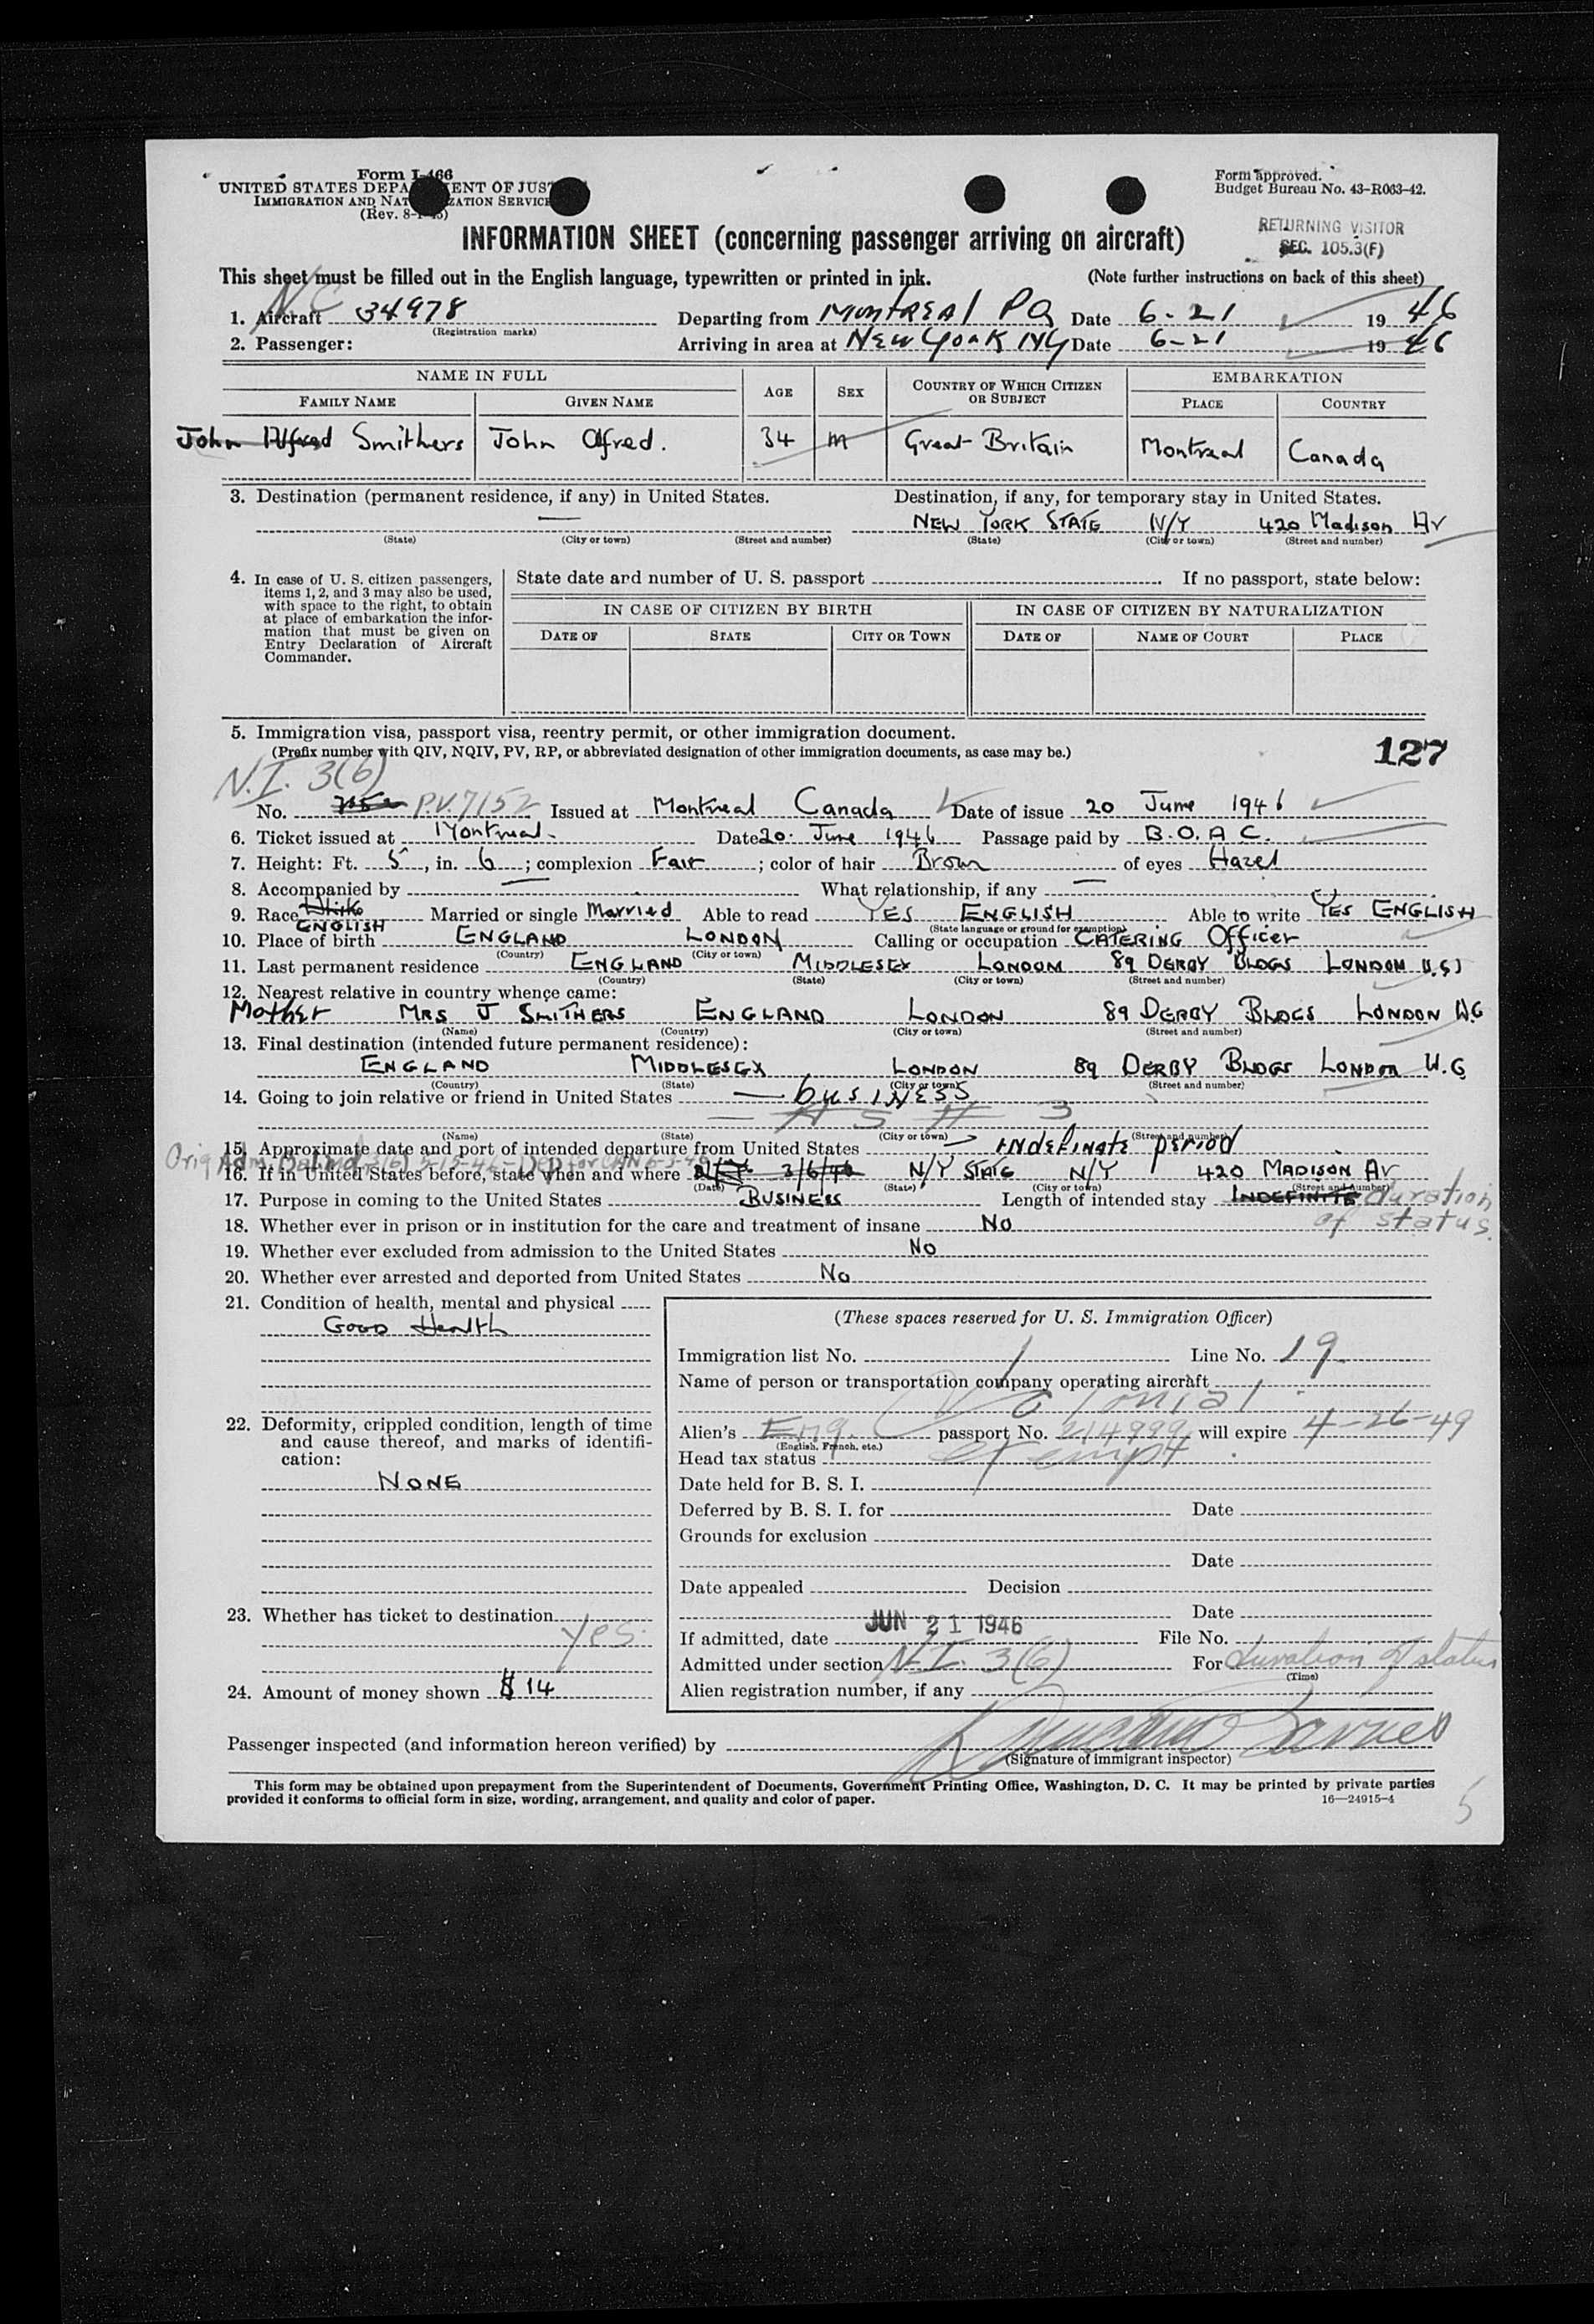 Form I-466
UNITED STATES DEPA ENT OF JUS
IMMIGRATION AND NAT ZATION SERVICE
(Rev. 8-1-45)
Form approved.
Budget Bureau No. 43-R063-42.
RETURNING VISITOR
SEC. 105.3(F)
INFORMATION SHEET (concerning passenger arriving on aircraft)
This sheet must be filled out in the English language, typewritten or printed in ink. (Note further instructions on back of this sheet)
1. Aircraft NC 34978 Departing from MONTREAL PQ Date 6-21 1946
(Registration marks)
2. Passenger: Arriving in area at NEW YORK NY Date 6-21 1946
NAME IN FULL AGE SEX COUNTRY OF WHICH CITIZEN OR SUBJECT EMBARKATION
FAMILY NAME GIVEN NAME PLACE COUNTRY
John Alfred Smithers John Alfred. 34 M Great Britain Montreal Canada
3. Destination (permanent residence, if any) in United States. Destination, if any, for temporary stay in United States.
— NEW YORK STATE N/Y 420 Madison Av
(State) (City or town) (Street and number) (State) (City or town) (Street and number)
4. In case of U. S. citizen passengers, items 1, 2, and 3 may also be used, with space to the right, to obtain at place of embarkation the information that must be given on Entry Declaration of Aircraft Commander.
State date and number of U. S. passport If no passport, state below:
IN CASE OF CITIZEN BY BIRTH IN CASE OF CITIZEN BY NATURALIZATION
DATE OF STATE CITY OR TOWN DATE OF NAME OF COURT PLACE
5. Immigration visa, passport visa, reentry permit, or other immigration document.
(Prefix number with QIV, NQIV, PV, RP, or abbreviated designation of other immigration documents, as case may be.)
127
N.I. 3(6)
No. 7152 P.V. 7152 Issued at Montreal Canada Date of issue 20 June 1946
6. Ticket issued at Montreal. Date 20. June 1946 Passage paid by B.O.A.C.
7. Height: Ft. 5, in. 6; complexion Fair; color of hair Brown of eyes Hazel
8. Accompanied by — What relationship, if any —
9. Race White ENGLISH Married or single Married Able to read YES ENGLISH Able to write YES ENGLISH
(State language or ground for exemption)
10. Place of birth ENGLAND LONDON Calling or occupation CATERING Officer
(Country) (City or town)
11. Last permanent residence ENGLAND MIDDLESEX LONDON 89 DERBY BLDGS LONDON
(Country) (State) (City or town) (Street and number)
12. Nearest relative in country whence came:
Mother MRS J SMITHERS ENGLAND LONDON 89 DERBY BLDGS LONDON W.C
(Name) (Country) (City or town) (Street and number)
13. Final destination (intended future permanent residence):
ENGLAND MIDDLESEX LONDON 89 DERBY BLDGS LONDON W.C
(Country) (State) (City or town) (Street and number)
14. Going to join relative or friend in United States — business
(Name) (State) (City or town) (Street and number)
15. Approximate date and port of intended departure from United States — INDEFINATE PERIOD
16. If in United States before, state when and where 3/6/46 N/Y STATE N/Y 420 MADISON AV
(Date) (State) (City or town) (Street and number)
17. Purpose in coming to the United States BUSINESS Length of intended stay INDEFINITE duration of status.
18. Whether ever in prison or in institution for the care and treatment of insane No
19. Whether ever excluded from admission to the United States No
20. Whether ever arrested and deported from United States No
21. Condition of health, mental and physical
Good Health
22. Deformity, crippled condition, length of time and cause thereof, and marks of identification:
NONE
23. Whether has ticket to destination
yes
24. Amount of money shown $ 14
(These spaces reserved for U. S. Immigration Officer)
Immigration list No. 1 Line No. 19.
Name of person or transportation company operating aircraft
Colonial.
Alien's Eng. passport No. 214999 will expire 4-26-49
(English, French, etc.)
Head tax status exempt
Date held for B. S. I.
Deferred by B. S. I. for Date
Grounds for exclusion
Date
Date appealed Decision
Date
If admitted, date JUN 21 1946 File No.
Admitted under section N.I. 3(6) For duration of status
(Time)
Alien registration number, if any
Passenger inspected (and information hereon verified) by
(Signature of immigrant inspector)
This form may be obtained upon prepayment from the Superintendent of Documents, Government Printing Office, Washington, D. C. It may be printed by private parties
provided it conforms to official form in size, wording, arrangement, and quality and color of paper. 16—24915-4
5